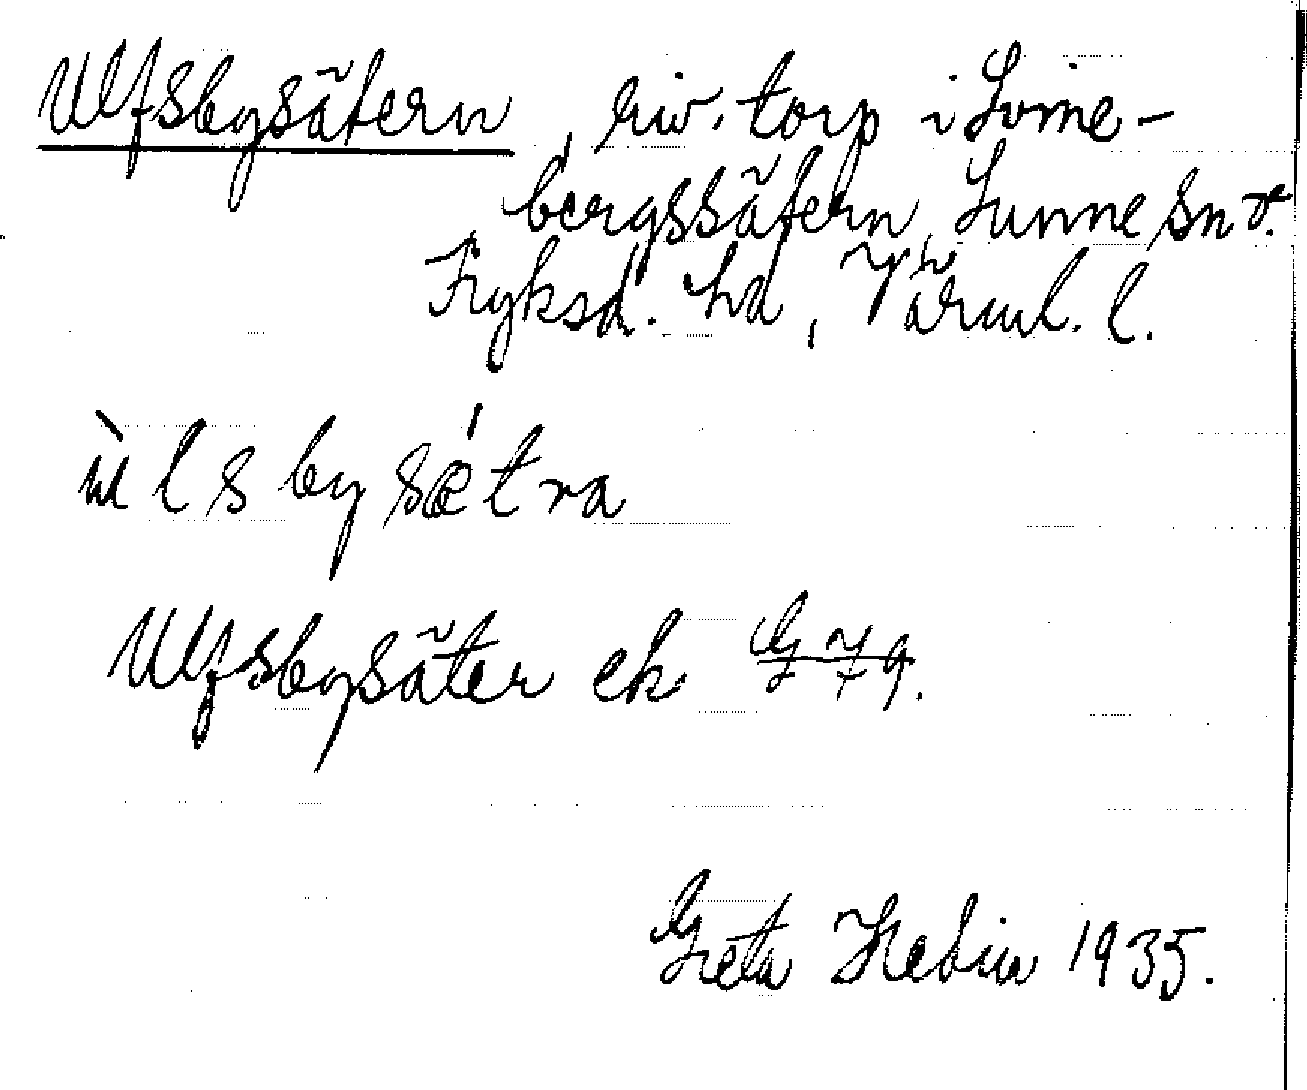 Ulfsbysätern, riv. torp i Lövne-
bergssätern, Sunne sn o.
Fryksd. hd, Värml. l.
ùlsbysǽtra
Ulfsbysäter ek G 79.
Greta Hedin 1935.